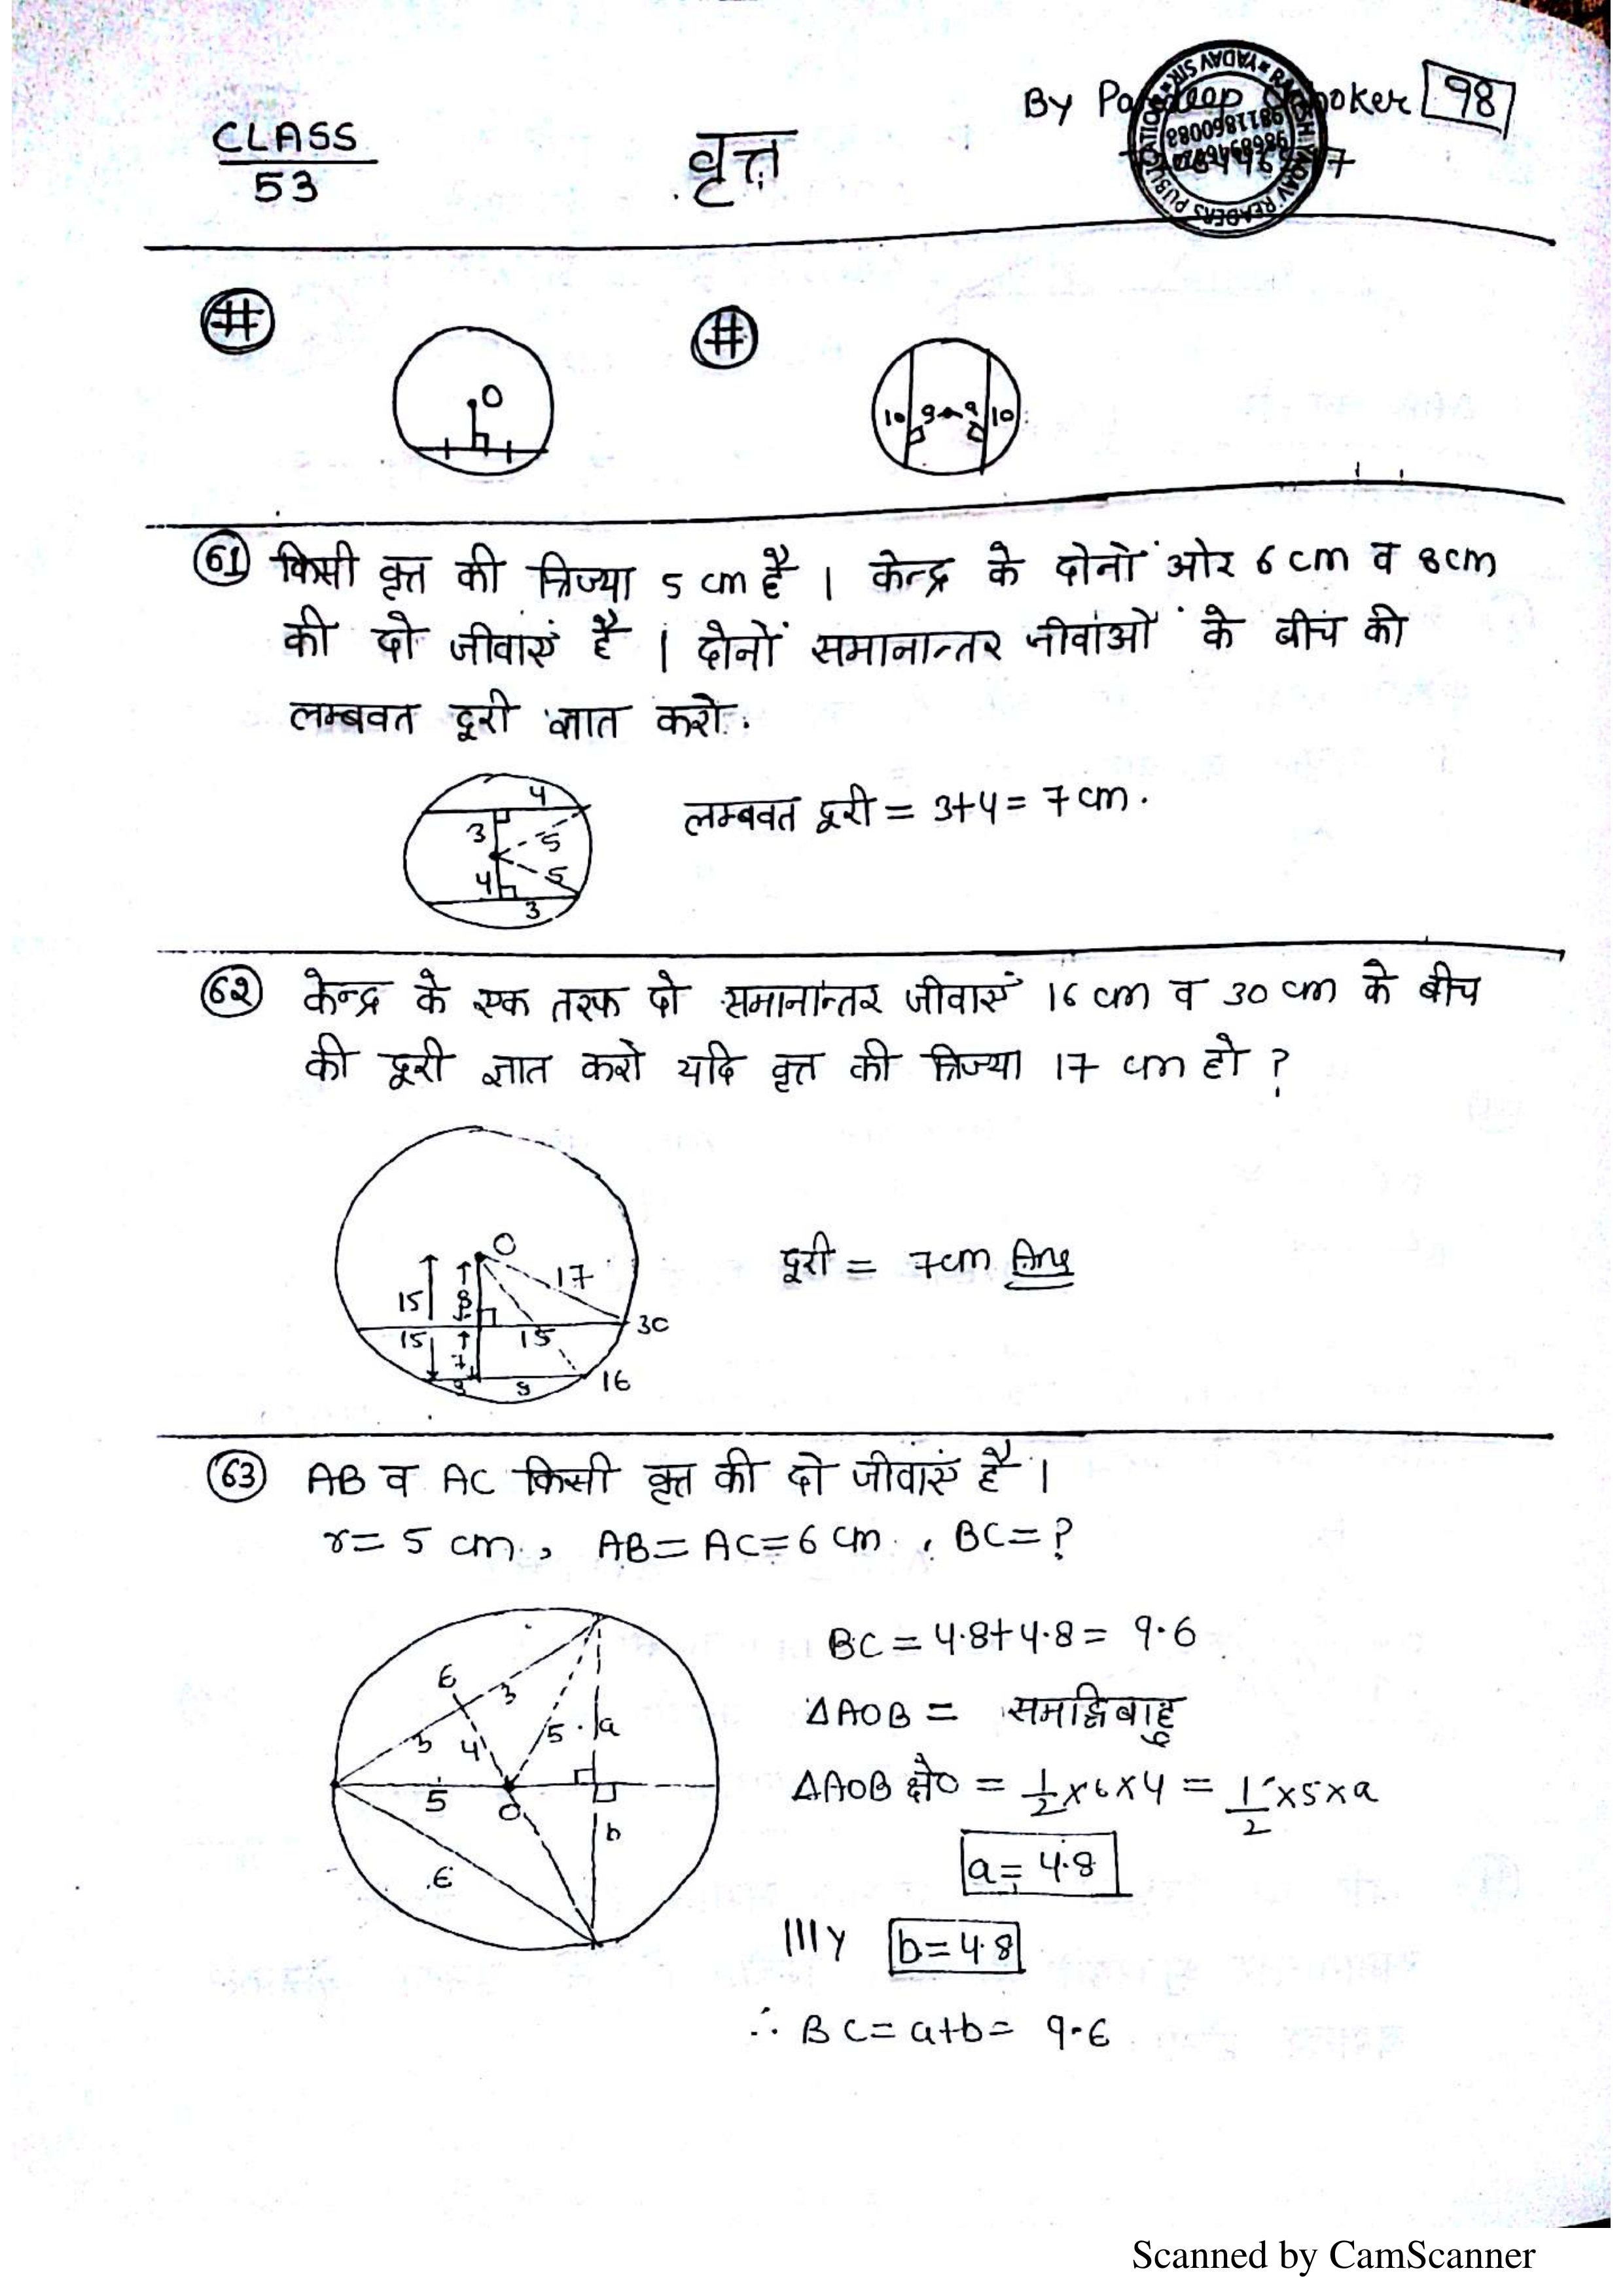 By Pardeep Chhoker 98
CLASS
53
वृत्त
#
#
O
10 9 9 10
61 किसी वृत्त की त्रिज्या 5 cm है । केन्द्र के दोनों ओर 6 cm व 8 cm
की दो जीवाएं है । दोनों समानान्तर जीवाओं के बीच की
लम्बवत दूरी ज्ञात करो.
4
3 5
4 5
3
लम्बवत दूरी = 3+4 = 7 cm.
62 केन्द्र के एक तरफ दो समानान्तर जीवाएं 16 cm व 30 cm के बीच
की दूरी ज्ञात करो यदि वृत्त की त्रिज्या 17 cm हो ?
O
15 8 17
15 15 30
7
8 8 16
दूरी = 7cm Ans
63 AB व AC किसी वृत्त की दो जीवाएं है ।
r = 5 cm, AB = AC = 6 cm, BC = ?
6 3
3 4 5 a
5 O
b
6
BC = 4.8+4.8 = 9.6
ΔAOB = समद्विबाहु
ΔAOB क्षे० = 1/2 x 6 x 4 = 1/2 x 5 x a
a = 4.8
lllY b = 4.8
∴ BC = a+b = 9.6
Scanned by CamScanner